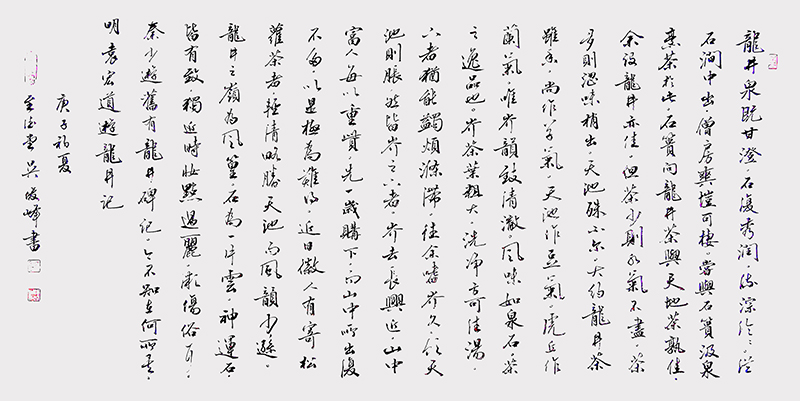 龍井泉既甘澄，石復秀潤，流淙從
石澗中出，僧房爽愷可棲。嘗與石簣汲泉
煮茶於此，石簣問龍井茶與天池茶孰佳，
余謂龍井亦佳，但茶少則水氣不盡，茶
多則澀味稍出，天池殊不尔。大約龍井茶
雖香，尚作草氣，天池作豆氣，虎丘作
蘭氣，唯岕韻致清澈，風味如泉石，茶
之逸品也。岕茶葉粗大，洗淨方可佳湯，
六者猶能蠲煩滌滯，往余嗜岕久，飲天
池則脹，皆岕之者，岕去長興近，山中
富人每以重貲，先一歲購下，而山中所出復
不多，以是極為難得。近日徽人有寄松
蘿茶者，輕清略勝天池，而風韻少遜。
龍井之嶺為風篁，石為一片雲、神運石，
皆有致，獨近時妝點過麗，彩傷俗耳。
秦少遊舊有龍井碑記，今不知在何所矣。
明袁宏道遊龍井記
庚子初夏
書